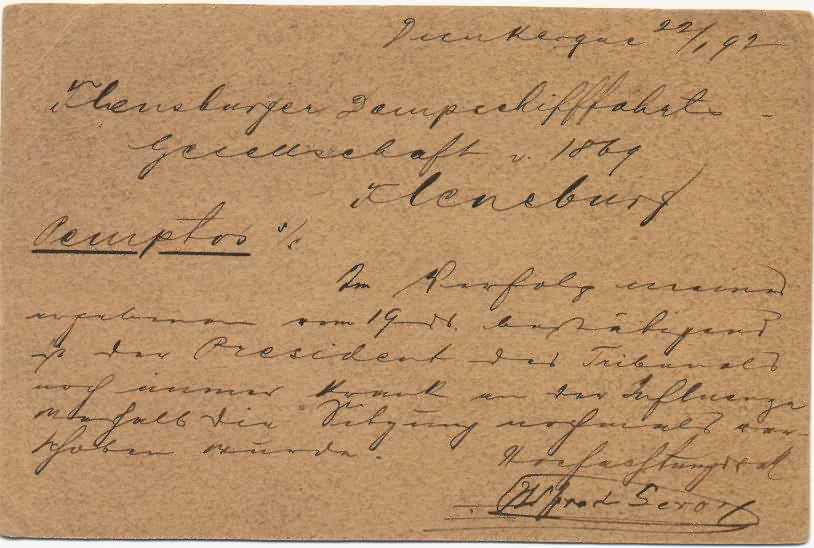 Duenkerque 22/1 92
Flensburger Dampfschifffahrts-
Gesellschaft v. 1869
Flensburg
Pemptos s/s
Im Verfolg meines
ergebenen vom 19 ds. bestätigend
ist der President des Tribunals
noch immer krank an der Influenza
weshalb die Sitzung nochmals ver-
schoben wurde.
Hochachtungsvoll
Alfred